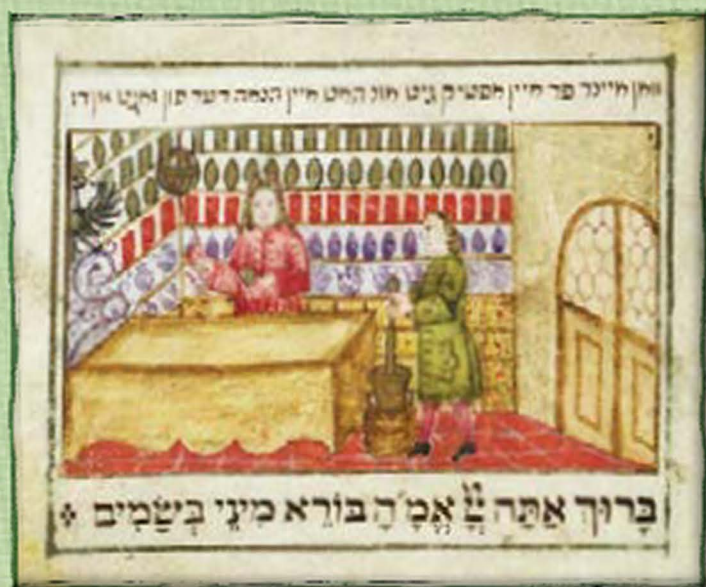 ווען איינר פר איין אפטיק גיט אונ האט איין הנאה דער פון זאגט
בָּרוּךְ אַתָּה יְיָ אֱמָ״הָ בּוֹרֵא מִינֵי בְשָׂמִים